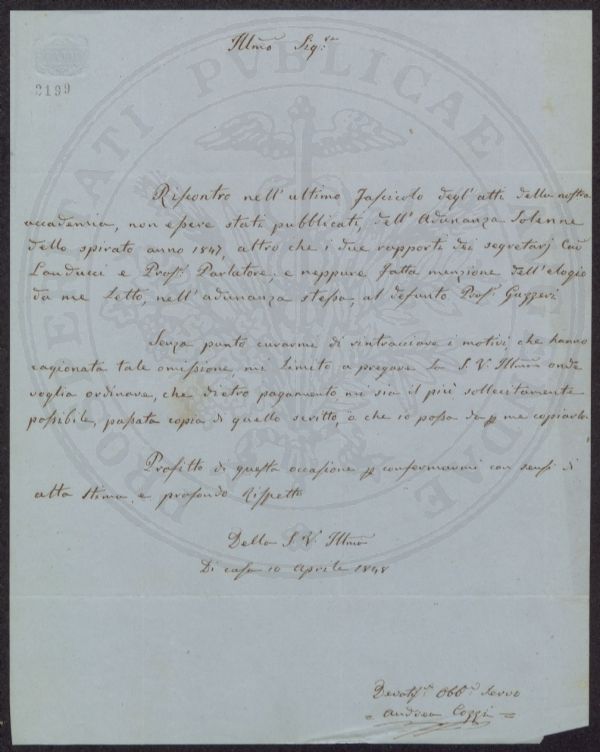 Illmo Sig.re
2199
Riscontro nell'ultimo Fascicolo degl'atti della nostra
accademia, non essere stati pubblicati, dell'Adunanza Solenne
dello spirato anno 1847, altro che i due rapporti dei segretarj Cav
Landucci e Prof. Parlatore; e neppure fatta menzione dell'elogio
da me Letto, nell'adunanza stessa, al defunto Prof. Gazzeri
Senza punto curarmi di rintracciare i motivi, che hanno
cagionata tale omissione, mi limito a pregare La S. V. Illma onde
voglia ordinare, che dietro pagamento mi sia il più sollecitamente
possibile, passata copia di quello scritto, o che io possa da p me copiarlo.
Profitto di questa occasione p confermarmi con sensi di
alta stima, e profondo Rispetto
Della S. V. Illma
Di casa 10 Aprile 1848
Devotss.o Obb.o Servo
= Andrea Cozzi =
PROSPERITATI PVBLICAE